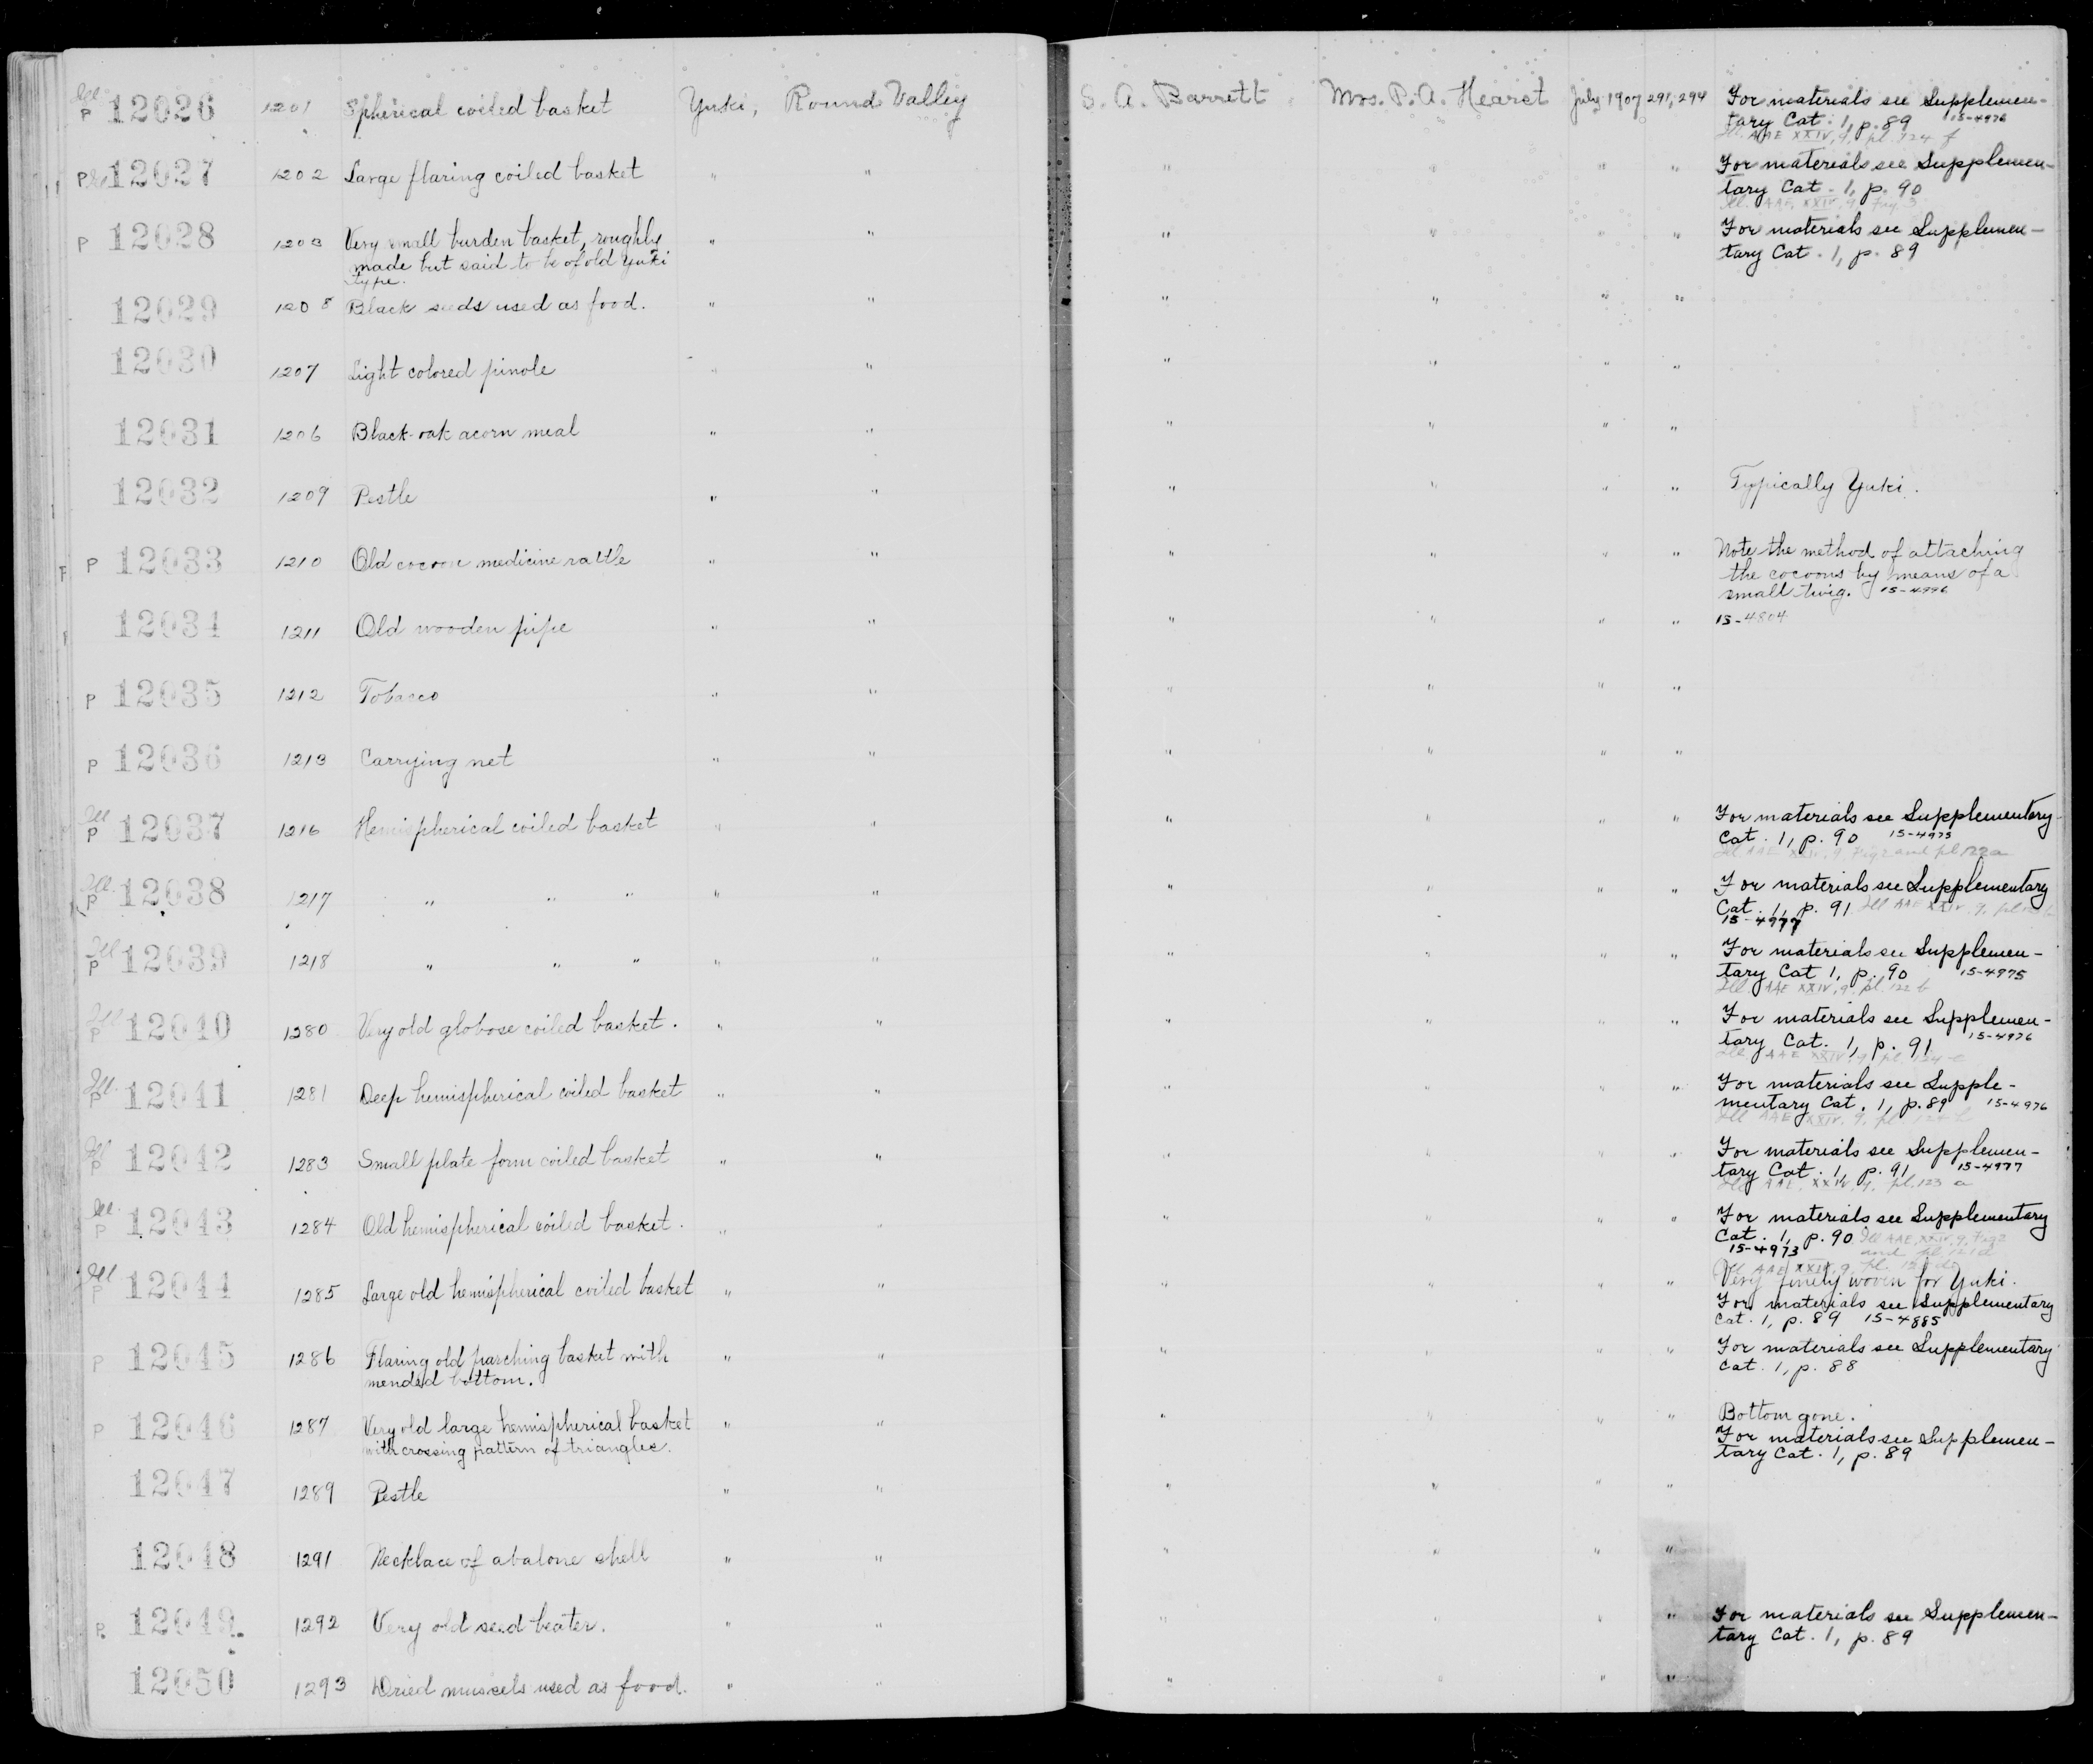 Ill. P 12026 1201 Spherical coiled basket Yuki, Round Valley S. A. Barrett Mrs. P. A. Hearst July 1907 291, 294 For materials see Supplemen-
tary Cat. 1, p. 89 15-4976
Ill. AAE XXIV, 9, pl. 124 f
P Ill 12027 1202 Large flaring coiled basket " " " " " " For materials see Supplemen-
tary Cat. 1, p. 90
Ill. AAE, XXIV, 9, Fig. 3
P 12028 1203 Very small burden basket, roughly " " " " " " For materials see Supplemen-
made but said to be of old Yuki tary Cat. 1, p. 89
type.
12029 1208 Black seeds used as food. " " " " " "
12030 1207 Light colored pinole " " " " " "
12031 1206 Black-oak acorn meal " " " " " "
12032 1209 Pestle " " " " " " Typically Yuki.
P 12033 1210 Old cocoon medicine rattle " " " " " " Note the method of attaching
the cocoons by means of a
small twig. 15-4996
12034 1211 Old wooden pipe " " " " " " 15-4804
P 12035 1212 Tobacco " " " " " "
P 12036 1213 Carrying net " " " " " "
Ill P 12037 1216 Hemispherical coiled basket " " " " " " For materials see Supplementary
Cat. 1, p. 90 15-4973
Ill AAE XXIV, 9, Fig 2 and pl 122a
Ill. P 12038 1217 " " " " " " " " " For materials see Supplementary
Cat. 1, p. 91 Ill AAE XXIV, 9, pl
15-4977
Ill P 12039 1218 " " " " " " " " " For materials see Supplemen-
tary Cat 1, p. 90 15-4975
Ill. AAE XXIV, 9, pl. 122 b
Ill P 12040 1280 Very old globose coiled basket. " " " " " " For materials see Supplemen-
tary Cat. 1, p. 91 15-4976
Ill AAE XXIV, 9 pl 124 e
Ill. P 12041 1281 Deep hemispherical coiled basket " " " " " " For materials see Supple-
mentary Cat. 1, p. 89 15-4976
Ill AAE XXIV, 9, pl.
Ill P 12042 1283 Small plate form coiled basket " " " " " " For materials see Supplemen-
tary Cat. 1, p. 91, 15-4977
Ill AAE, XXIV, 9, pl. 123 a
Ill. P 12043 1284 Old hemispherical coiled basket. " " " " " " For materials see Supplementary
Cat. 1, p. 90 Ill AAE, XXIV, 9, Fig 2
15-4973 and pl. 121d
Ill P 12044 1285 Large old hemispherical coiled basket " " " " " " Ill AAE, XXIV, 9, pl.
Very finely woven for Yuki.
For materials see Supplementary
Cat. 1, p. 89 15-4885
P 12045 1286 Flaring old parching basket with " " " " " " For materials see Supplementary
mended bottom. Cat. 1, p. 88
P 12046 1287 Very old large hemispherical basket " " " " " " Bottom gone.
with crossing pattern of triangles. For materials see Supplemen-
tary Cat. 1, p. 89
12047 1289 Pestle " " " " " "
12048 1291 Necklace of abalone shell " " " " " "
P. 12049 1292 Very old seed beater. " " " " " " For materials see Supplemen-
tary Cat. 1, p. 89
12050 1293 Dried mussels used as food. " " " " " "